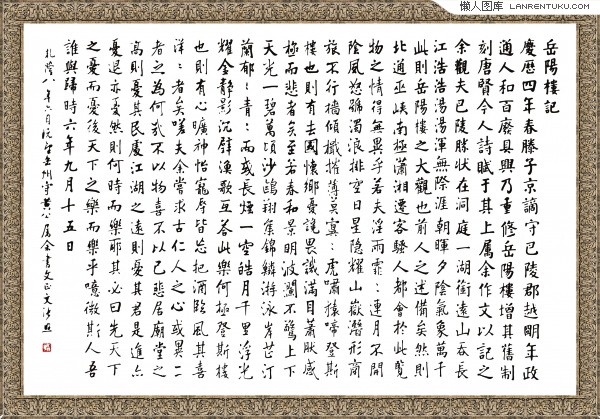 懒人图库 - LANRENTUKU.COM
岳陽樓記
慶曆四年春滕子京謫守巴陵郡越明年政
通人和百廢具興乃重修岳陽樓增其舊制
刻唐賢今人詩賦于其上属余作文以記之
余觀夫巴陵勝状在洞庭一湖銜遠山吞長
江浩浩湯湯渾無際涯朝暉夕陰氣象萬千
此則岳陽樓之大觀也前人之述備矣然則
北通巫峽南極瀟湘遷客騷人都會於此覽
物之情得無異乎若夫淫雨霏:連月不開
陰風怒號濁浪排空日星隱耀山嶽潛形商
旅不行檣傾檝摧薄莫冥:虎嘯猿啼登斯
樓也則有去國懷鄉憂讒畏譏滿目蕭然感
極而悲者矣至若春和景明波瀾不驚上下
天光一碧萬頃沙鷗翔集錦鱗游泳岸芷汀
蘭郁:青:而或長煙一空皓月千里浮光
耀金靜影沉璧漁歌互答此樂何極登斯樓
也則有心曠神怡寵辱皆忘把酒臨風其喜
洋:者矣嗟夫余嘗求古仁人之心或異二
者之為何哉不以物喜不以己悲居廟堂之
高則憂其民處江湖之遠則憂其君是進亦
憂退亦憂然則何時而樂耶其必曰先天下
之憂而憂後天下之樂而樂乎噫微斯人吾
誰與歸時六年九月十五日